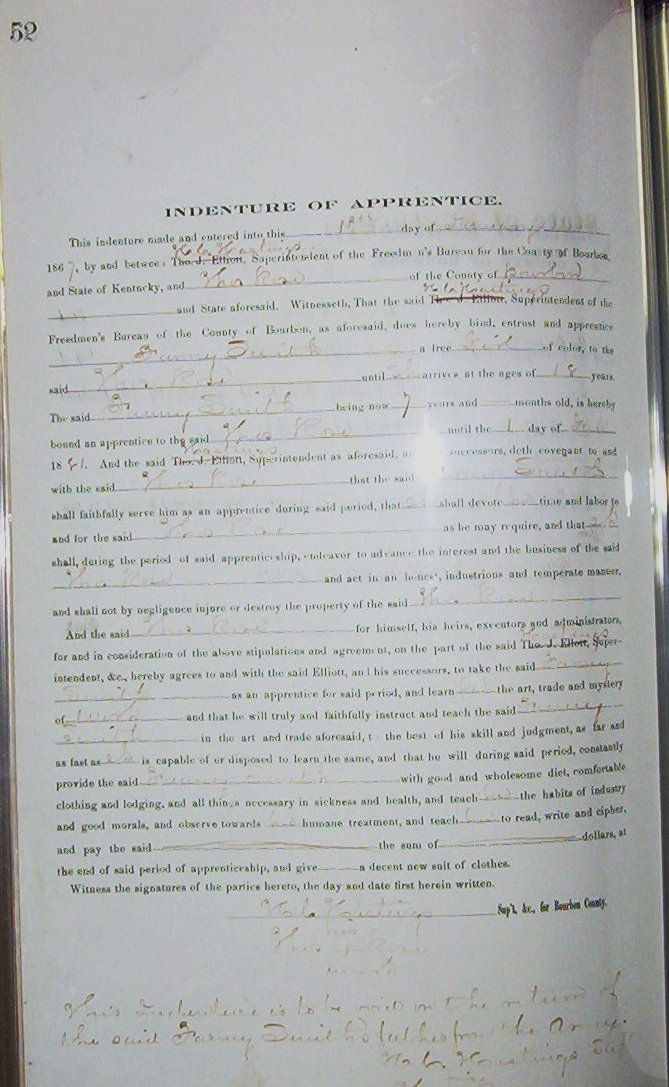 52
INDENTURE OF APPRENTICE.
This indenture made and entered into this day of
H. C. Hastings
1867, by and between Tho. J. Elliott, Superintendent of the Freedmen's Bureau for the County of Bourbon,
and State of Kentucky, and Thos Rose of the County of Bourbon
H. C. Hastings
and State aforesaid. Witnesseth, That the said Tho. J. Elliott, Superintendent of the
Freedmen's Bureau of the County of Bourbon, as aforesaid, does hereby bind, entrust and apprentice
Fanny Smith a free Girl of color, to the
said Thos Rose until she arrives at the ages of 18 years.
The said Fanny Smith being now 7 years and months old, is hereby
bound an apprentice to the said Thos Rose until the 1 day of
Hastings
18 And the said Tho. J. Elliott, Superintendent as aforesaid, successors, doth covenant to and
with the said Thos Rose that the said Fanny Smith
shall faithfully serve him as an apprentice during said period, that shall devote time and labor to
and for the said Thos Rose as he may require, and that
shall, during the period of said apprenticeship, endeavor to advance the interest and the business of the said
Thos Rose and act in an honest, industrious and temperate manner,
and shall not by negligence injure or destroy the property of the said Thos Rose
And the said Thos Rose for himself, his heirs, executors and administrators,
for and in consideration of the above stipulations and agreement, on the part of the said Tho. J. Elliott, Super-
intendent, &c., hereby agrees to and with the said Elliott, and his successors, to take the said Fanny
Smith as an apprentice for said period, and learn the art, trade and mystery
of and that he will truly and faithfully instruct and teach the said Fanny
Smith in the art and trade aforesaid, to the best of his skill and judgment, as far and
as fast as is capable of or disposed to learn the same, and that he will during said period, constantly
provide the said Fanny Smith with good and wholesome diet, comfortable
clothing and lodging, and all things necessary in sickness and health, and teach her the habits of industry
and good morals, and observe towards her humane treatment, and teach her to read, write and cipher,
and pay the said the sum of dollars, at
the end of said period of apprenticeship, and give a decent new suit of clothes.
Witness the signatures of the parties hereto, the day and date first herein written.
H. C. Hastings Sup't. &c., for Bourbon County.
his
Thos + Rose
mark
This Indenture is to be void on the return of
the said Fanny Smith's father from the Army.
H. C. Hastings Sup